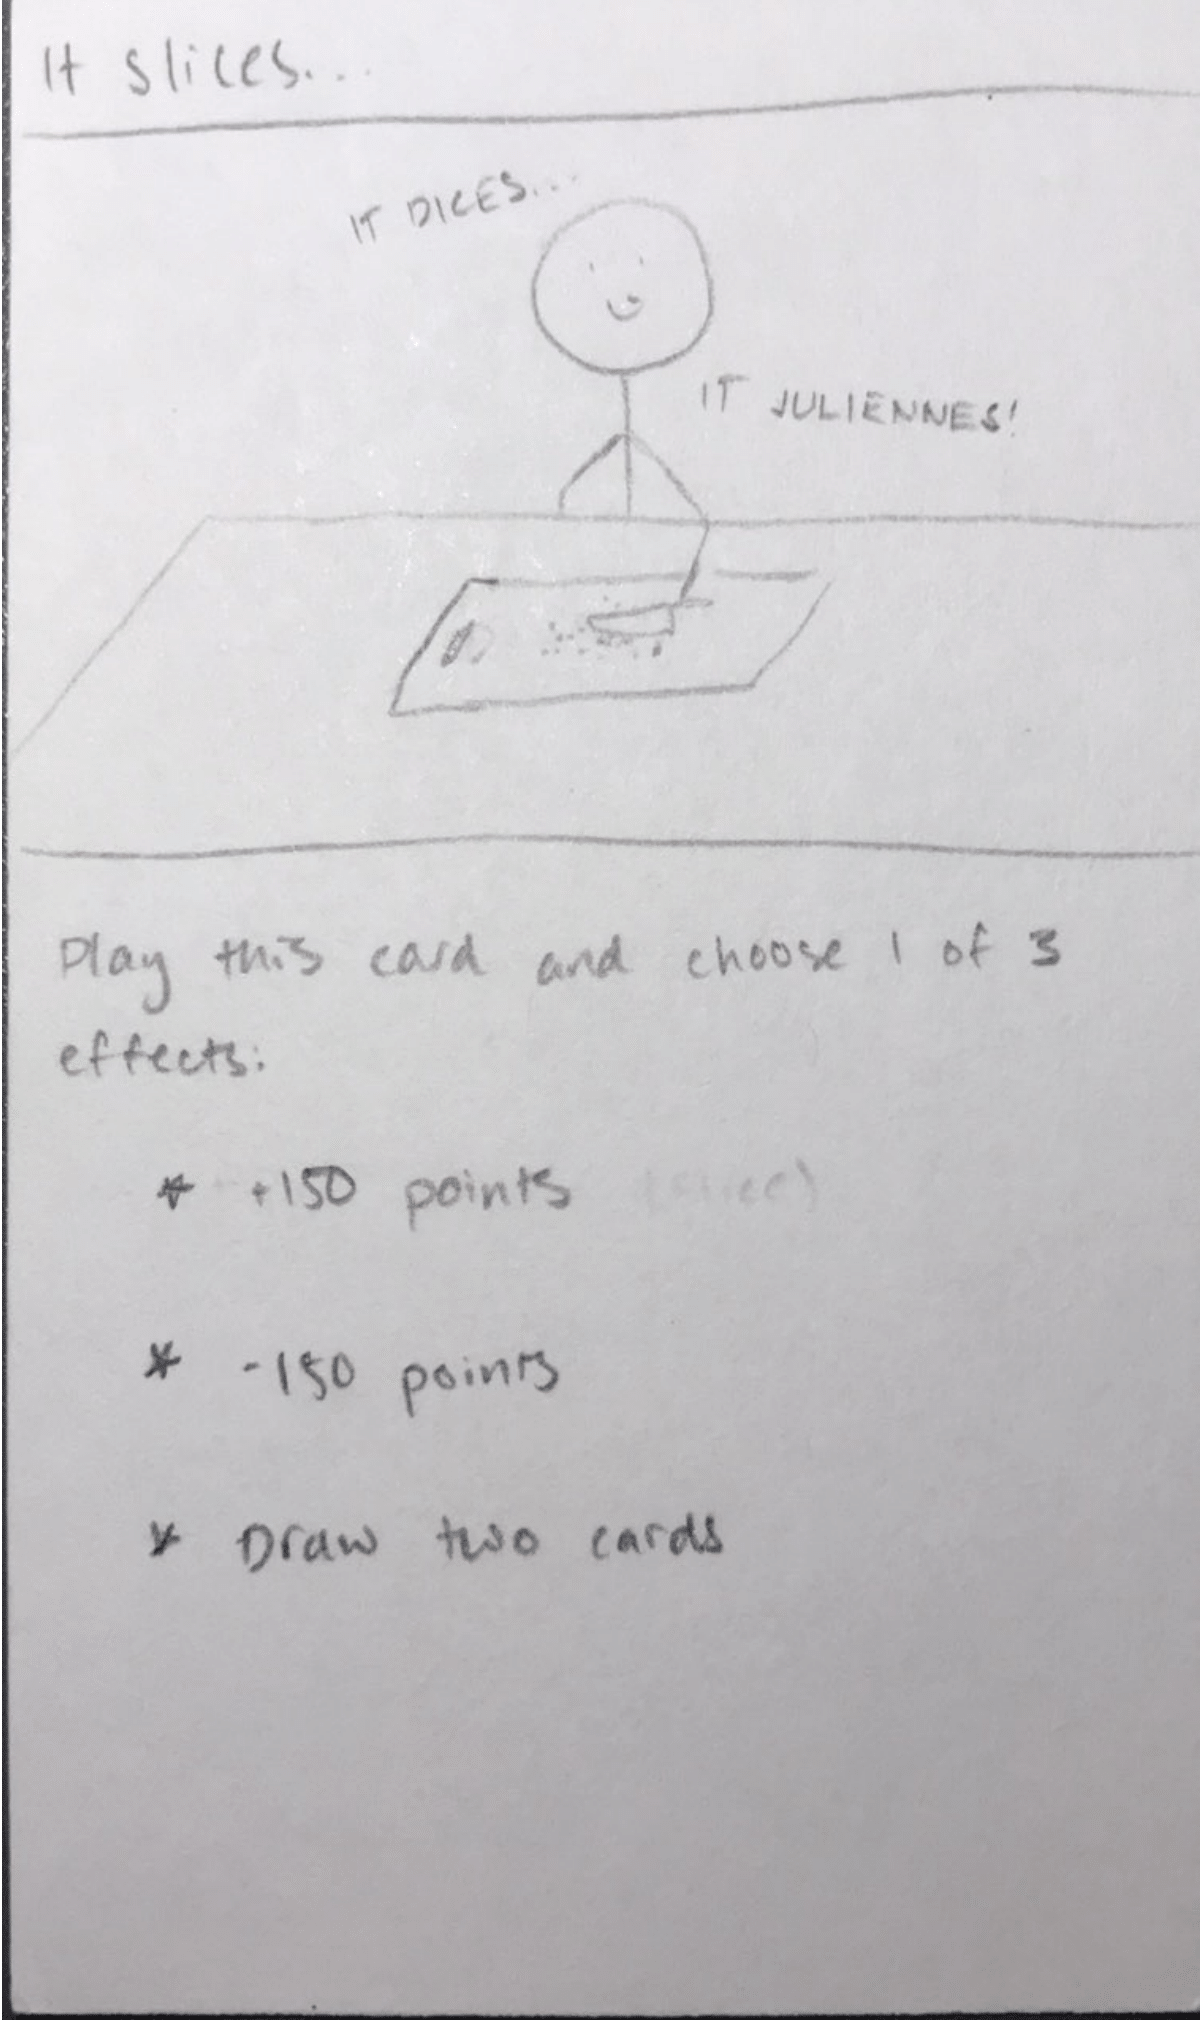 It slices...
IT DICES...
IT JULIENNES!
Play this card and choose 1 of 3
effects:
* +150 points (slice)
* -150 points
* Draw two cards